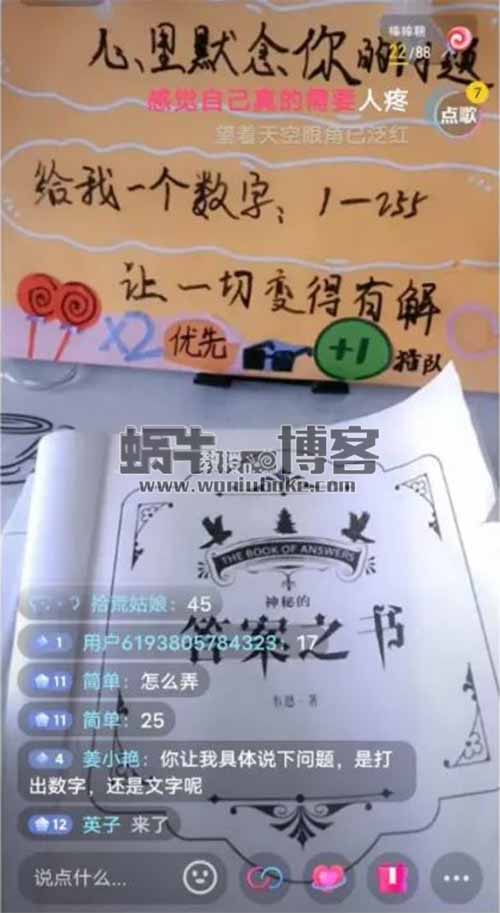 棒棒糖
22/88
心里默念你的问题
感觉自己真的需要人疼
7
点歌
望着天空眼角已泛红
给我一个数字：1一255
让一切变得有解
x2 优先 +1 插队
蜗牛博客
www.woniuboke.com
THE BOOK OF ANSWERS
神秘的
答案之书
韦恩·著
拾荒姑娘：45
1 用户6193805784323：17
11 简单：怎么弄
11 简单：25
4 姜小艳：你让我具体说下问题，是打
出数字，还是文字呢
12 英子 来了
说点什么...